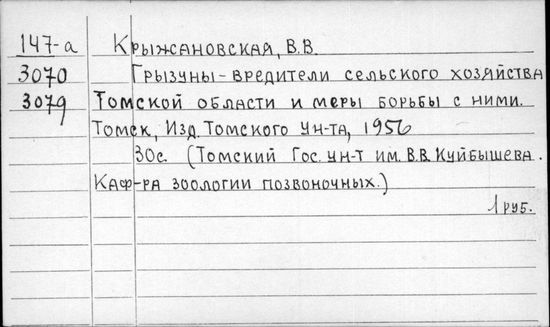 147-а Крыжановская, В.В.
3070 Грызуны-вредители сельского хозяйства
3079 Томской области и меры борьбы с ними.
Томск, Изд. Томского ун-та, 1956
30с. (Томский Гос. ун-т им. В.В. Куйбышева.
Каф-ра зоологии позвоночных.)
1 руб.